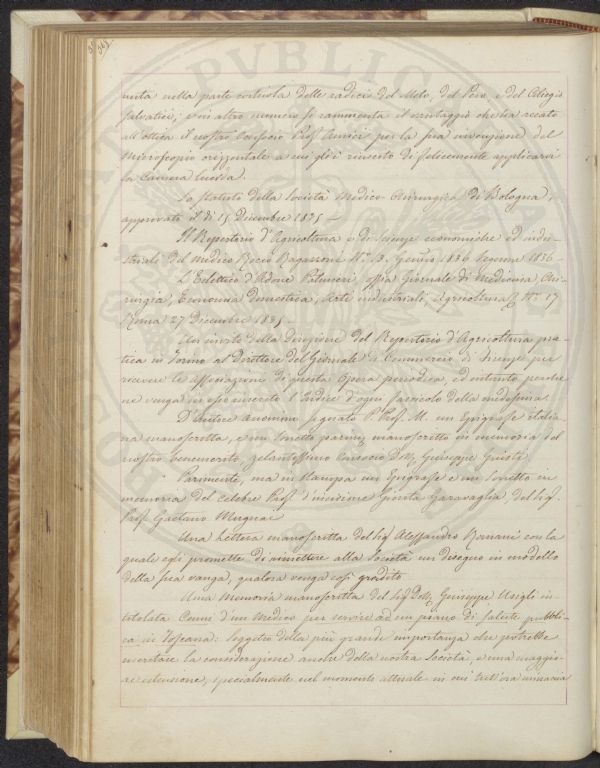 nuta nella parte corticale delle radici del Melo, del Pero, e del Ciliegio
salvatici; e in altro numero si rammenta il vantaggio che ha recato
all'ottica il nostro Consocio Prof. Amici per la sua invenzione del
Microscopio orizzontale a cui gli è riuscito di felicemente applicarvi
la Camera lucida.
Lo statuto della Società Medico-Chirurgica di Bologna,
approvato il dì 15 Dicembre 1835 —
Il Repertorio d'Agricoltura e di Scienze economiche ed indu-
striali del Medico Rocco Ragazzoni N.° 3. Genn.° 1836
L'Eclettico d'Adone Palmieri, ossia Giornale di Medicina, Chi-
rurgia, Economia domestica, Arti industriali, Agricoltura N.° 17
Roma 27 Dicembre 1835 —
Un invito della Direzione del Repertorio d'Agricoltura pra-
tica in Torino al Direttore del Giornale di Commercio di Firenze per
ricevere le Associazioni di questa Opera periodica, ed intanto perchè
ne venga in esso inserito l'Indice d'ogni fascicolo della medesima
D'autore anonimo segnato P. Prof. M. un Epigrafe italia-
na manoscritta, e un Sonetto parim. manoscritto in memoria del
nostro benemerito, zelantissimo Consocio Dott. Giuseppe Giusti
Parimente, ma in stampa un Epigrafe e un Sonetto in
memoria del celebre Prof. d'incisione Giovita Garavaglia, del Sig.
Prof. Gaetano
Una Lettera manoscritta del Sig. Alessandro con la
quale egli promette di rimettere alla Società un disegno in modello
della sua vanga, qualora venga così gradito
Una Memoria manoscritta del Sig. Dott. Giuseppe in-
titolata Cenni d'un Medico per servire ad un piano di salute pubbli-
ca in Toscana: Soggetto della più grande importanza che potrebbe
meritare la considerazione anche della nostra Società, e una maggio-
re estensione, specialmente nel momento attuale in cui tutt'ora minaccia